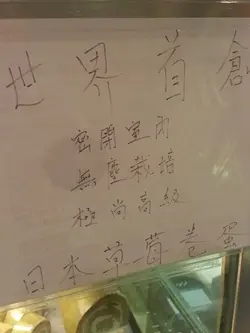 世界首創
密閉室內
無塵栽培
極尚高級
日本草莓卷蛋